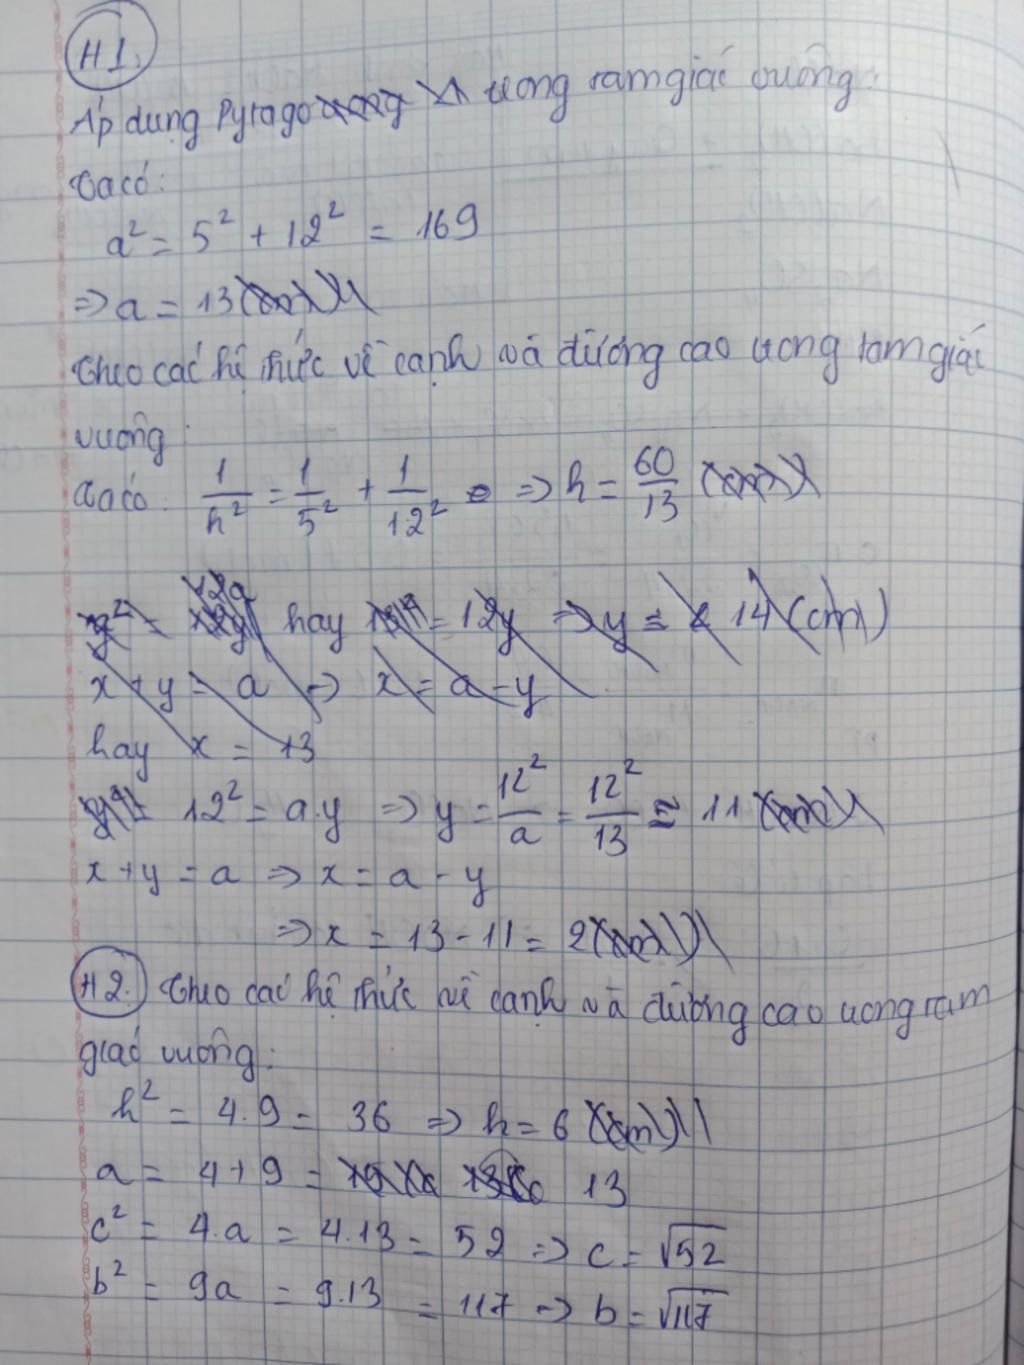 H1.
Áp dụng Pytago trong tam giác vuông:
Ta có:
a² = 5² + 12² = 169
=> a = 13
Theo các hệ thức về cạnh và đường cao trong tam giác
vuông
Ta có: 1/h² = 1/5² + 1/12² => h = 60/13
hay = 12y => y = 14 (cm)
x + y = a => x = a - y
hay x = 13
12² = a.y => y = 12²/a = 12²/13 ≈ 11
x + y = a => x = a - y
=> x = 13 - 11 = 2
H2. Theo các hệ thức về cạnh và đường cao trong tam
giác vuông:
h² = 4.9 = 36 => h = 6
a = 4 + 9 = 13
c² = 4.a = 4.13 = 52 => c = √52
b² = 9a = 9.13 = 117 => b = √117